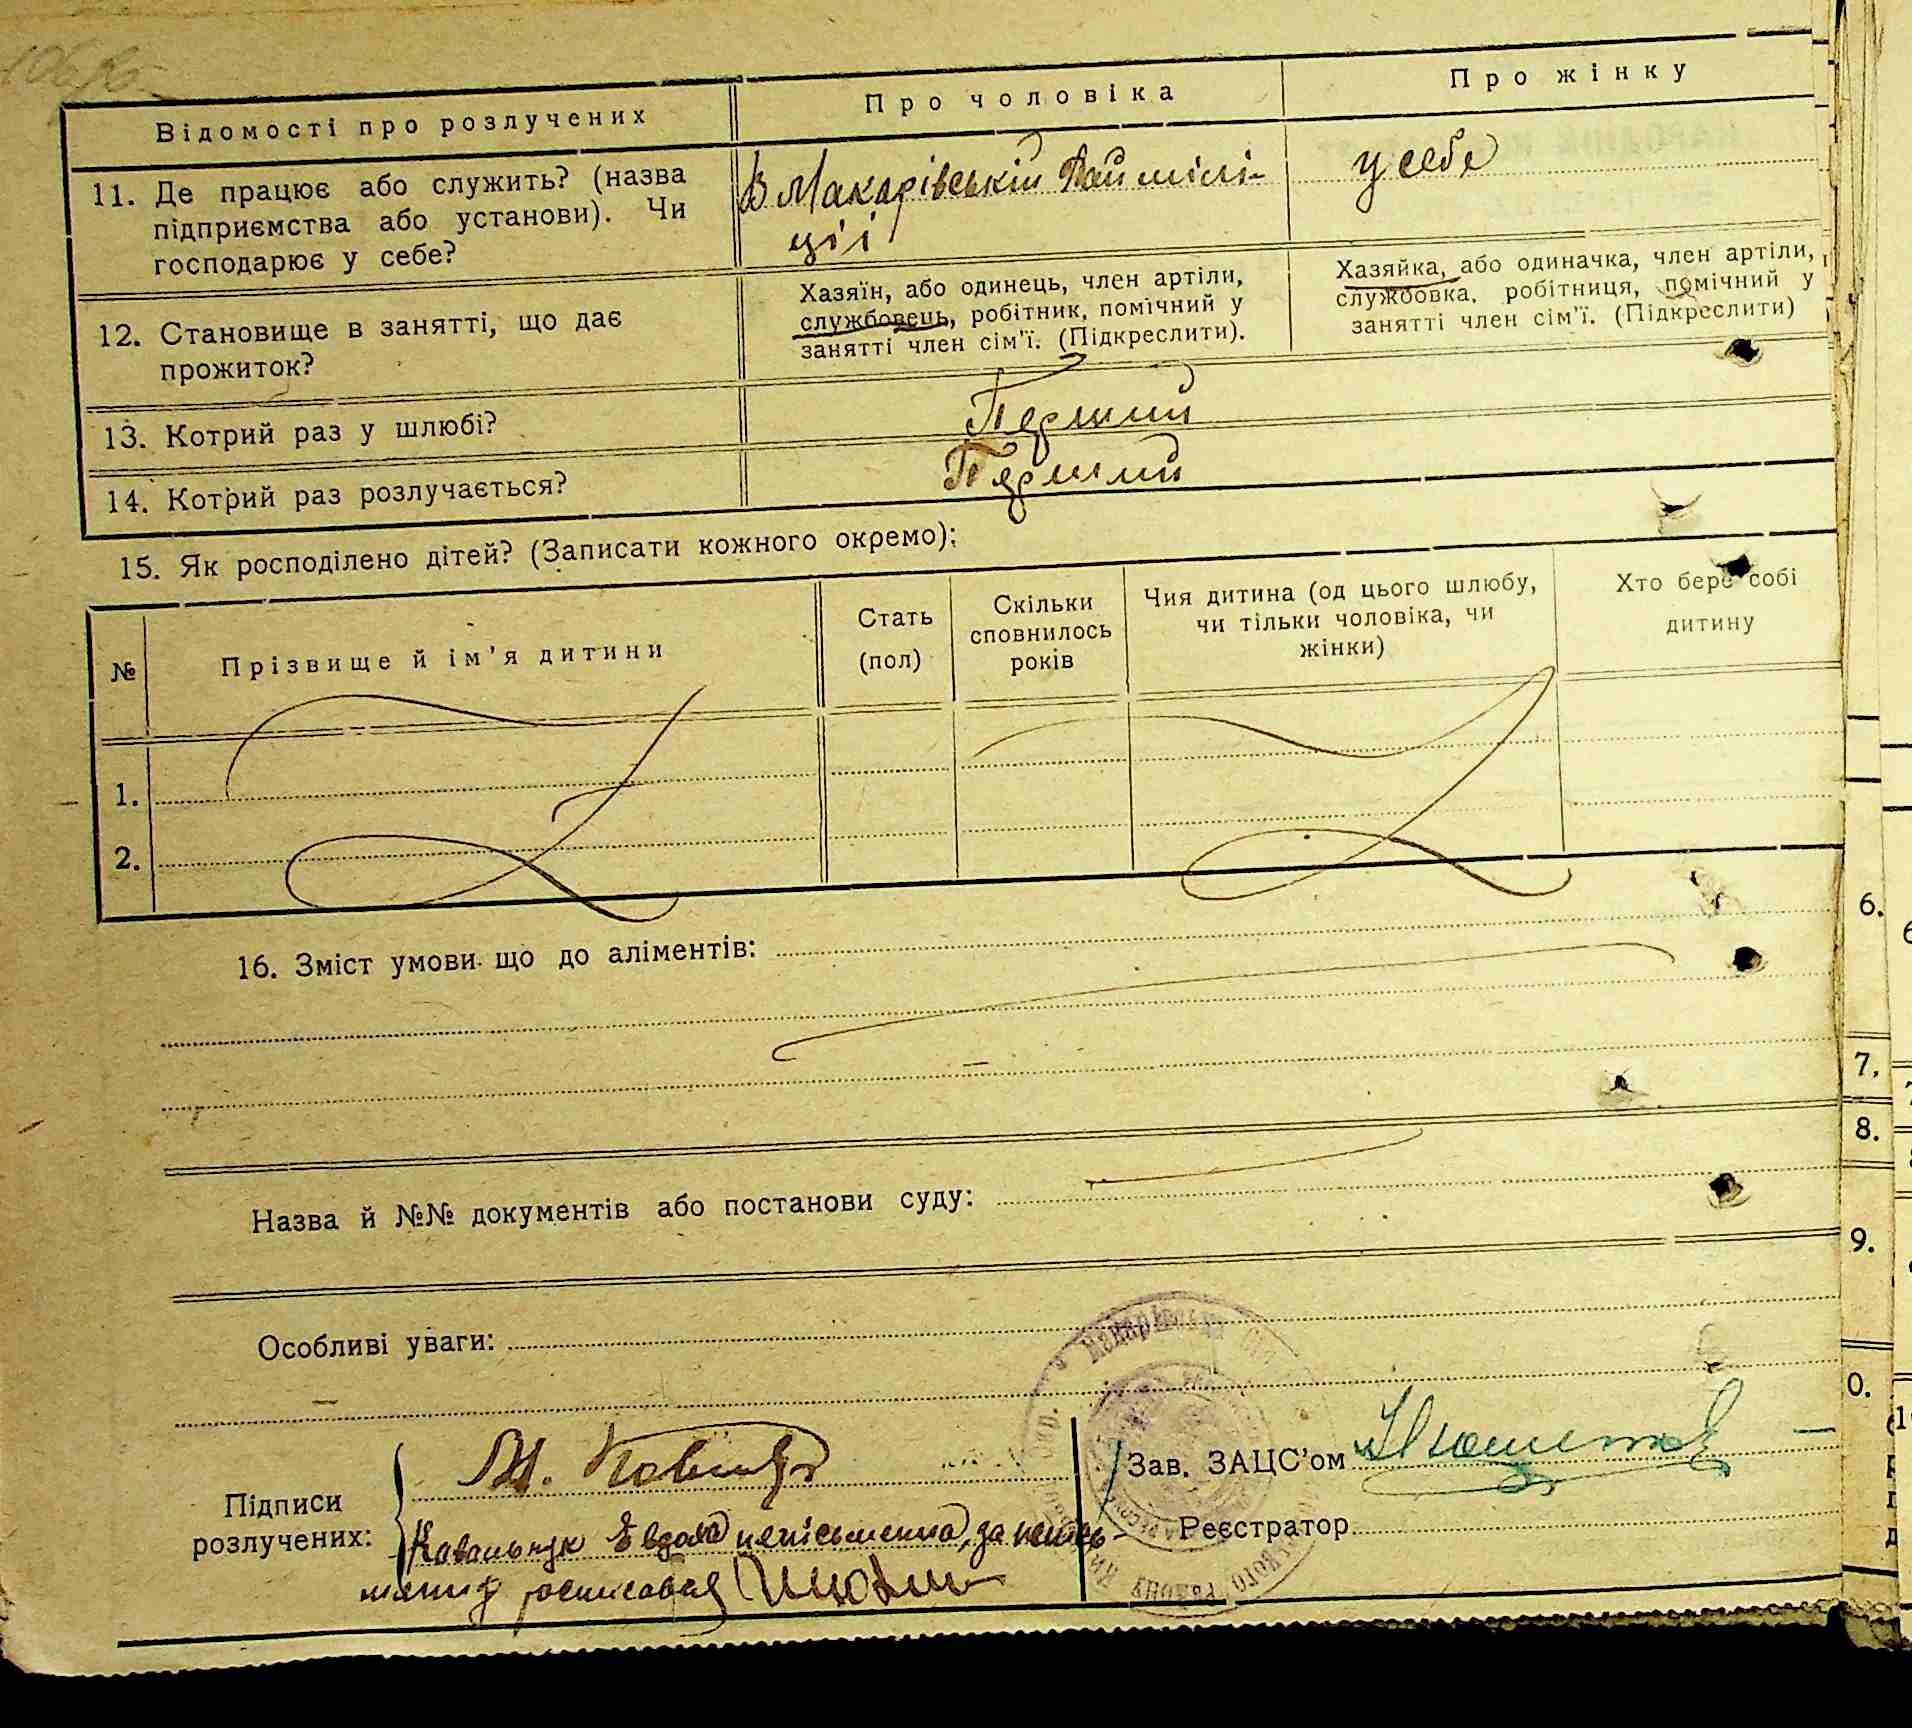 Відомості про розлучених
Про чоловіка
Про жінку
11. Де працює або служить? (назва
підприємства або установи). Чи
господарює у себе?
В Макарівській Рай міліції
у себе
12. Становище в занятті, що дає
прожиток?
Хазяїн, або одинець, член артіли,
службовець, робітник, помічний у
занятті член сім'ї. (Підкреслити).
Хазяйка, або одиначка, член артіли,
службовка, робітниця, помічний у
занятті член сім'ї. (Підкреслити)
13. Котрий раз у шлюбі?
Перший
14. Котрий раз розлучається?
Перший
15. Як росподілено дітей? (Записати кожного окремо);
№
Прізвище й ім'я дитини
Стать
(пол)
Скільки
сповнилось
років
Чия дитина (од цього шлюбу,
чи тільки чоловіка, чи
жінки)
Хто бере собі
дитину
1.
2.
16. Зміст умови що до аліментів:
Назва й №№ документів або постанови суду:
Особливі уваги:
Підписи
розлучених:
М.
Ковальчук Евдоха неписьменна, за
росписався
Зав. ЗАЦС'ом
Реєстратор
6.
7.
8.
9.
0.